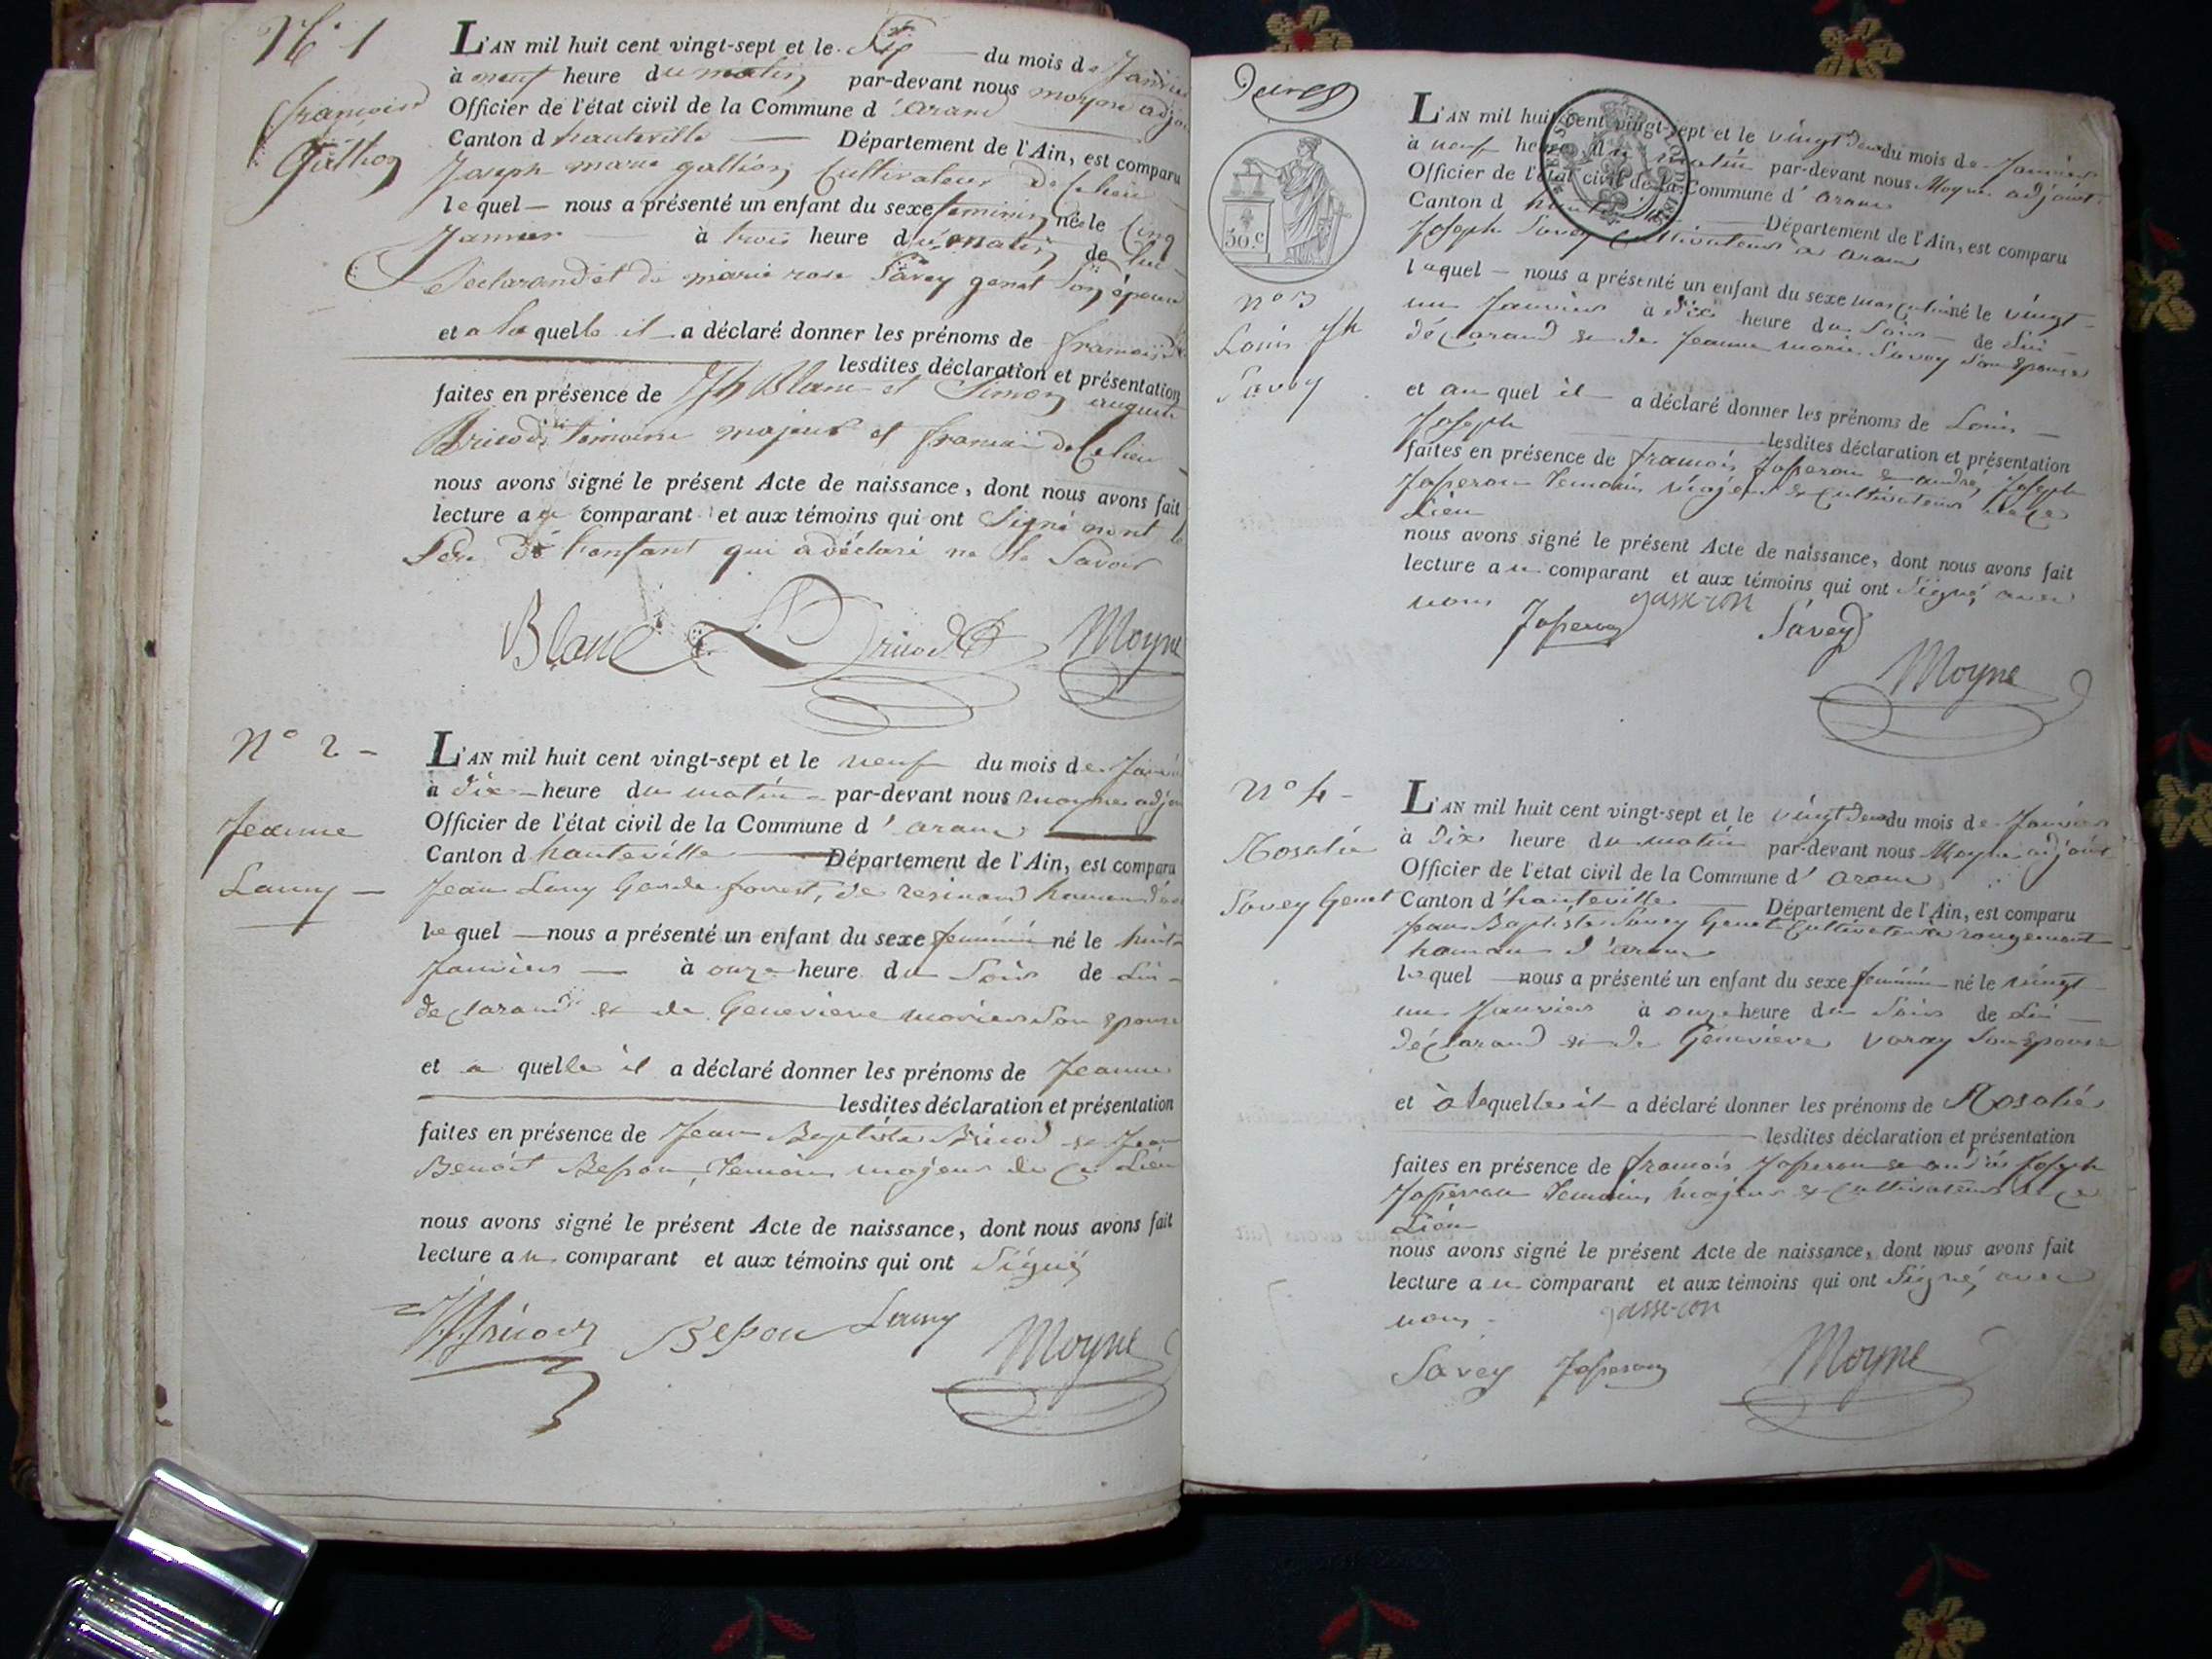 N° 1
L'AN mil huit cent vingt-sept et le Six du mois de Janvier
à neuf heure du matin par-devant nous moyne adjoint
françoise
Officier de l'état civil de la Commune d'aranc
Canton d hauteville Département de l'Ain, est comparu
Gallion
Joseph marie gallion Cultivateur de Ce lieu
lequel nous a présenté un enfant du sexe feminin née le Cinq
Janvier à trois heure du matin de lui
Declarand et de marie rose Savey genet Son épouse
et a la quelle il a déclaré donner les prénoms de françoise
lesdites déclaration et présentation
faites en présence de Jh Blanc et Simon auguste
Bricod témoins majeurs et français de Ce lieu
nous avons signé le présent Acte de naissance, dont nous avons fait
lecture au comparant et aux témoins qui ont Signé non le
Père de l'enfant qui a déclaré ne le Savoir
Blanc Bricod Moyne
N° 2 -
L'AN mil huit cent vingt-sept et le neuf du mois de Janvier
à dix heure du matin par-devant nous moyne adjoint
Jeanne
Officier de l'état civil de la Commune d'aranc
Canton d hauteville Département de l'Ain, est comparu
Lamy -
Jean Lamy Garde forest, de resinand hameau d'aranc
lequel nous a présenté un enfant du sexe feminin né le huit
Janvier à onze heure du Soir de Lui
declarand & de Genevieve Son Epouse
et a quelle il a déclaré donner les prénoms de Jeanne
lesdites déclaration et présentation
faites en présence de Jean Baptiste Bricod & Jean
Benoit Besson, Temoins majeurs de Ce Lieu
nous avons signé le présent Acte de naissance, dont nous avons fait
lecture au comparant et aux témoins qui ont Signé
Bricod Besson Lamy Moyne
50.c
N° 3
Louis Jh
Savey
L'AN mil huit cent vingt-sept et le vingt deux du mois de Janvier
à neuf heure du matin par-devant nous Moyne adjoint
Officier de l'état civil de la Commune d'aranc
Canton d hauteville Département de l'Ain, est comparu
Joseph Savey Cultivateur à aranc
lequel nous a présenté un enfant du sexe masculin né le vingt
un Janvier à dix heure du Soir de Lui
déclarand & de Jeanne Marie Savey Son Epouse
et au quel il a déclaré donner les prénoms de Louis
Joseph lesdites déclaration et présentation
faites en présence de françois Jasseron & andré Joseph
Jasseron Temoins majeurs & Cultivateurs de Ce
Lieu
nous avons signé le présent Acte de naissance, dont nous avons fait
lecture au comparant et aux témoins qui ont Signé, avec
nous
Jasseron Jasseron Savey
Moyne
N° 4 -
Rosalie
Savey Genet
L'AN mil huit cent vingt-sept et le vingt deux du mois de Janvier
à dix heure du matin par-devant nous Moyne adjoint
Officier de l'état civil de la Commune d'aranc
Canton d'hauteville Département de l'Ain, est comparu
Jean Baptiste Savey Genet Cultivateur à rougemont
hameau d'aranc
lequel nous a présenté un enfant du sexe feminin né le vingt
un Janvier à onze heure du Soir de Lui
déclarand & de Géneviève varay Son Epouse
et à laquelle il a déclaré donner les prénoms de Rosalie
lesdites déclaration et présentation
faites en présence de françois Jasseron & andré Joseph
Jasseron Temoins majeurs & Cultivateurs de Ce
Lieu
nous avons signé le présent Acte de naissance, dont nous avons fait
lecture au comparant et aux témoins qui ont Signé, avec
nous - Jasseron
Savey Jasseron Moyne